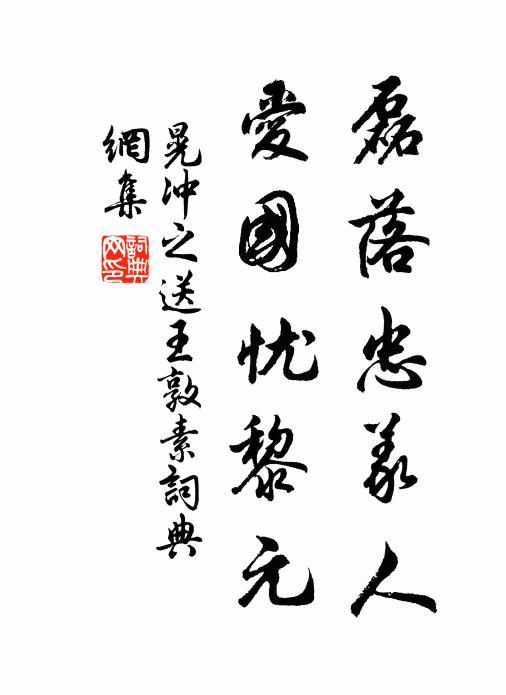 磊落忠義人
愛國忧黎元
晁沖之送王敦素詞典
網集
詞典
网印